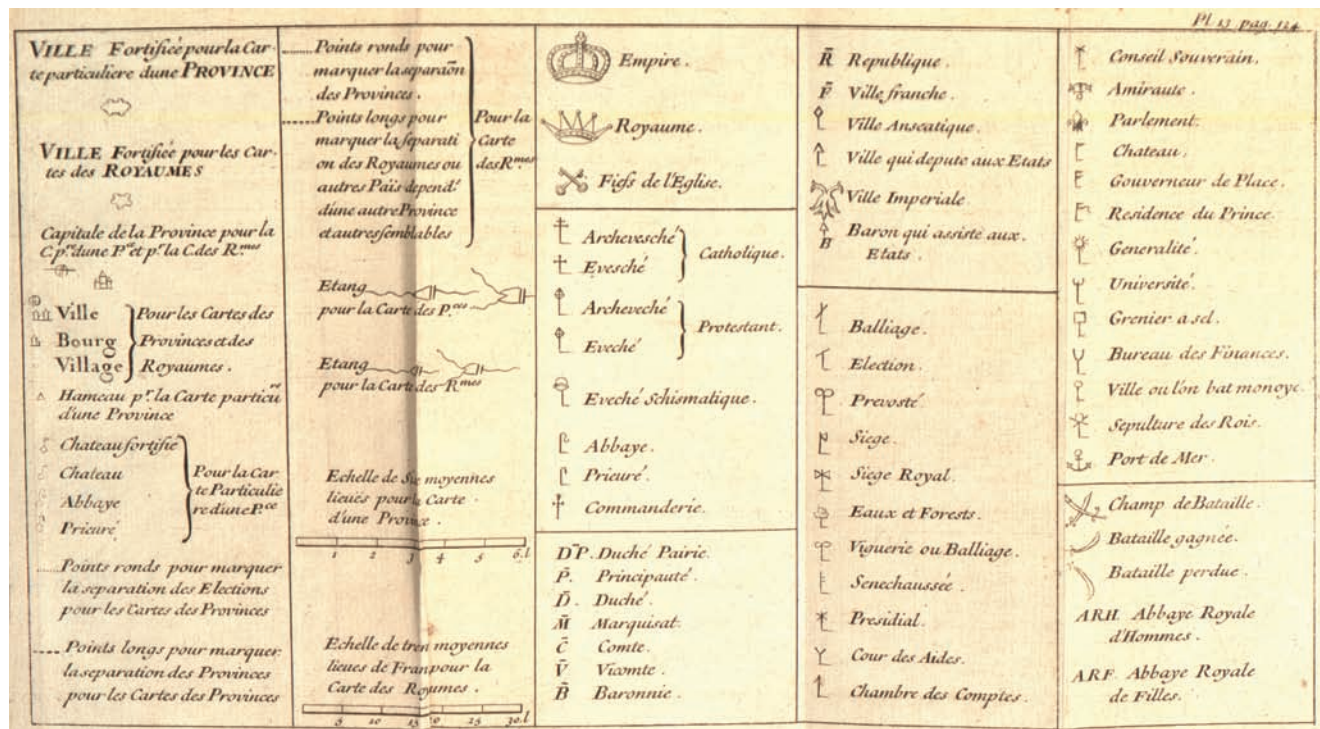 Pl. 13 pag. 124
VILLE Fortifiée pour la Car-
te particuliere dune PROVINCE
VILLE Fortifiée pour les Car-
tes des ROYAUMES
Capitale de la Province pour la
C. pre. dune Pce. et pr. la C. des R.mes
Ville
Bourg
Village
Pour les Cartes des
Provinces et des
Royaumes.
Hameau pr. la Carte particu
d'une Province
Chateau fortifié
Chateau
Abbaye
Prieuré
Pour la Car-
te Particulie
re d'une P.ce
Points ronds pour marquer
la separation des Elections
pour les Cartes des Provinces
Points longs pour marquer
la separation des Provinces
pour les Cartes des Provinces
Points ronds pour
marquer la separaõn
des Provinces.
Points longs pour
marquer la separati
on des Royaumes ou
autres Païs depend.t
d'une autre Province
et autres semblables
Pour la
Carte
des R.mes
Etang
pour la Carte des P.ces
Etang
pour la Carte des R.mes
Echelle de Six moyennes
lieues pour la Carte
d'une Province.
1 2 3 4 5 6.l
Echelle de tren moyennes
lieues de Fran pour la
Carte des Royumes.
5 10 15 20 25 30.l
Empire.
Royaume.
Fiefs de l'Eglise.
Archevesché
Evesché
Catholique.
Archeveché
Eveché
Protestant.
Eveché Schismatique.
Abbaye.
Prieuré.
Commanderie.
D̄P. Duché Pairie.
P̄. Principauté.
D̄. Duché.
M̄ Marquisat.
C̄ Comte.
V̄ Vicomte.
B̄ Baronnie.
R̄ Republique.
F̄ Ville franche.
Ville Anseatique.
Ville qui depute aux Etats
Ville Imperiale
B Baron qui assiste aux.
Etats.
Balliage.
Election.
Prevosté
Siege.
Siege Royal.
Eaux et Forests.
Viguerie ou Balliage.
Senechaussée.
Presidial.
Cour des Aides.
Chambre des Comptes.
Conseil Souverain.
Amiraute.
Parlement.
Chateau.
Gouverneur de Place.
Residence du Prince.
Generalité.
Université.
Grenier a sel.
Bureau des Finances.
Ville ou l'on bat monoye.
Sepulture des Rois.
Port de Mer.
Champ de Bataille.
Bataille gagnée.
Bataille perdue.
ARH. Abbaye Royale
d'Hommes.
ARF. Abbaye Royale
de Filles.